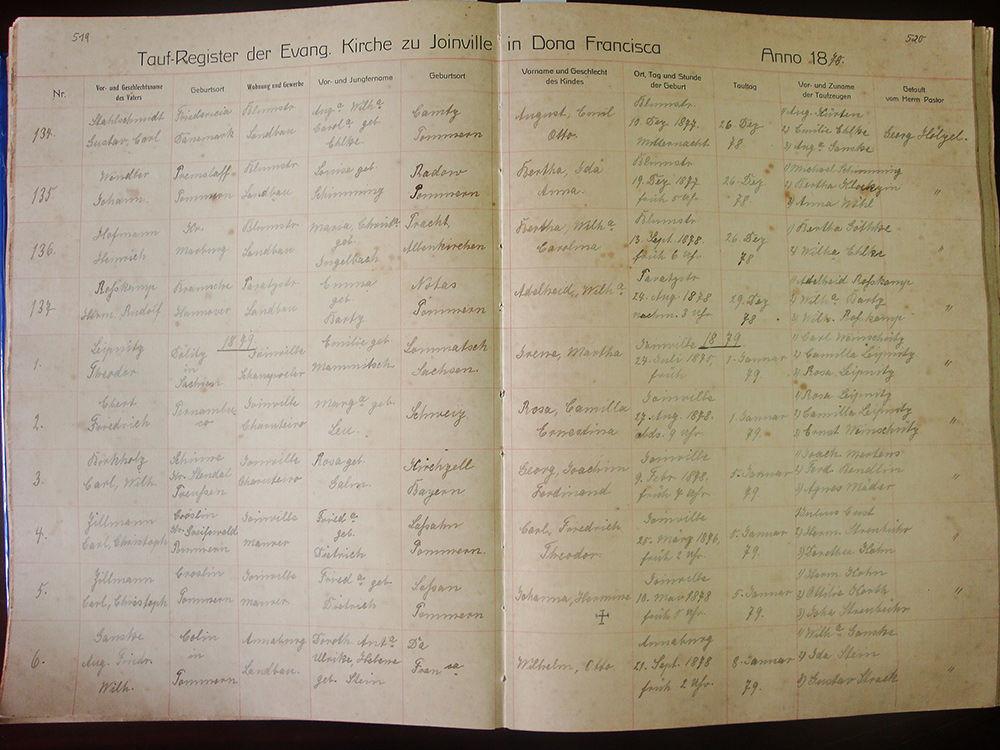 519
520
Tauf-Register der Evang. Kirche zu Joinville in Dona Francisca
Anno 1878.
Nr.
Vor- und Geschlechtsname des Vaters
Geburtsort
Wohnung und Gewerbe
Vor- und Jungfername
Geburtsort
Vorname und Geschlecht des Kindes
Ort, Tag und Stunde der Geburt
Tauftag
Vor- und Zuname der Taufzeugen
Getauft vom Herrn Pastor
134.
Stahlschmidt Fridericia Blumstr. Aug.a Wilh.a Camtz
Gustav, Carl Dänemark Landbau Carol.a geb. Ehlke Pommern
August, Emil Otto.
Blumstr. 10. Dez. 1877. Mitternacht
26. Dez. 78
1) Aug. Kürten
2) Emilie Ehlke
3) Aug.a Janske
Georg Hölzel.
135
Johann. Pommern Landbau
Blumstr. Louise geb. Radow
Pommern
Bertha, Ida Anna.
Blumstr. 19. Dez. 1877 früh 5 Uhr
26. Dez. 78
1) Michael
2) Bertha
3) Anna
"
136.
Hofmann Kr. Blumstr. Maria,
Heinrich Marburg Landbau geb. Altenkirchen
Bertha, Wilh.a Carolina
Blumstr. 13. Sept. 1878. früh 6 Uhr
26. Dez. 78
1) Bertha
2) Wilh.a Ehlke
"
137
Roßkamp Bramsche Paratystr. Emma Notas
Herm. Rudolf Hannover Landbau geb. Bartz Pommern
Adelheid, Wilh.a
Paratystr 24. Aug. 1878 nachm. 3 Uhr
29. Dez 78
1) Adelheid Roßkamp
2) Wilh.a Bartz
3) Wilh. Roßkamp
"
1879
1879
1.
Leipnitz in Joinville Emilie geb. Lommatsch
Theodor Sachsen Sachsen.
Irena, Martha
Joinville 24. Juli 1875, früh
1. Januar 79
1) Carl Weinschütz
2) Camilla Leipnitz
3) Rosa Leipnitz
"
2.
Ebert Pernambuco Joinville Marg.a geb. Schweiz.
Friedrich Charuteiro Leu.
Rosa, Camilla Ernestina
Joinville 27. Aug. 1878. abds. 9 Uhr
1. Januar 79.
1) Rosa Leipnitz
2) Camilla Leipnitz
3) Ernst Weinschütz
"
3.
Birkholz Joinville Rosa geb. Kirchzell
Carl, Wilh. Kr. Stendal Preußen Charuteiro Salm. Bayern
Georg, Joachim Ferdinand
Joinville 9. Febr. 1878, früh 4 Uhr
5. Januar 79
1) Joach. Mertens
2) Ferd. Bendlin
3) Agnes Mäder
"
4.
Zillmann Croslin Joinville Fried.a geb. Laßahn
Carl, Christoph Kr. Greifswald Pommern Maurer Dietrich Pommern.
Carl, Friedrich Theodor.
Joinville 25. März 1876, früh 2 Uhr.
5. Januar 79.
2) Herm.
3) Dorothea Hahn
"
5.
Zillmann Croslin Joinville Fried.a geb. Laßan
Carl, Christoph Pommern Maurer Dietrich Pommern
Johanna, Hermine
Joinville 10. Mai 1878 früh 5 Uhr.
5. Januar 79.
1) Herm. Hahn
2) Ottilie
3) Joha
"
6.
Janske Colin Annaburg Doroth. Ant.a Da
Aug. Friedr. Wilh. in Pommern Landbau. Ulrike Helene geb. Stein Fran.sa
Wilhelm, Otto
Annaburg 21. Sept. 1878 früh 2 Uhr.
8. Januar 79.
1) Wilh.a Janske
2) Ida Stein
3) Gustav Strack
"